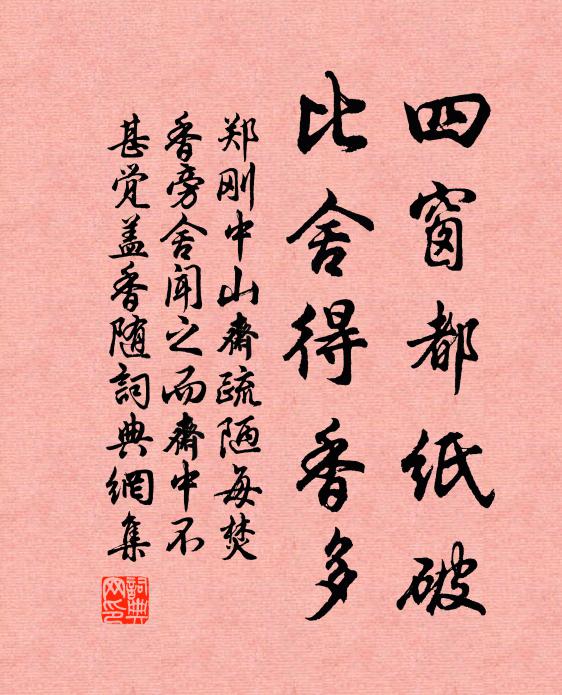 四窗都纸破
比舍得香多
郑刚中山斋疏陋每焚
香旁舍闻之而斋中不
甚觉盖香随詞典網集
詞典网印